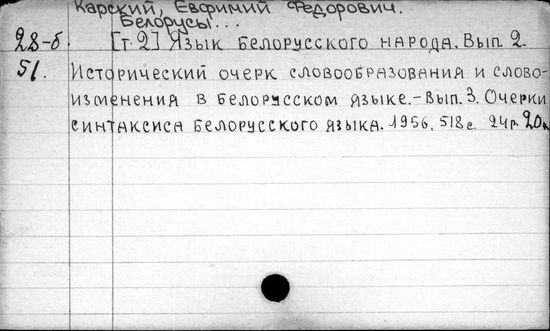 Карский, Евфимий Федорович.
Белорусы...
28-б. [т. 2] Язык белорусского народа. Вып. 2.
51. Исторический очерк словообразования и слово-
изменения в белорусском языке. - Вып. 3. Очерки
синтаксиса белорусского языка. 1956. 518 с. 24 р. 20 к